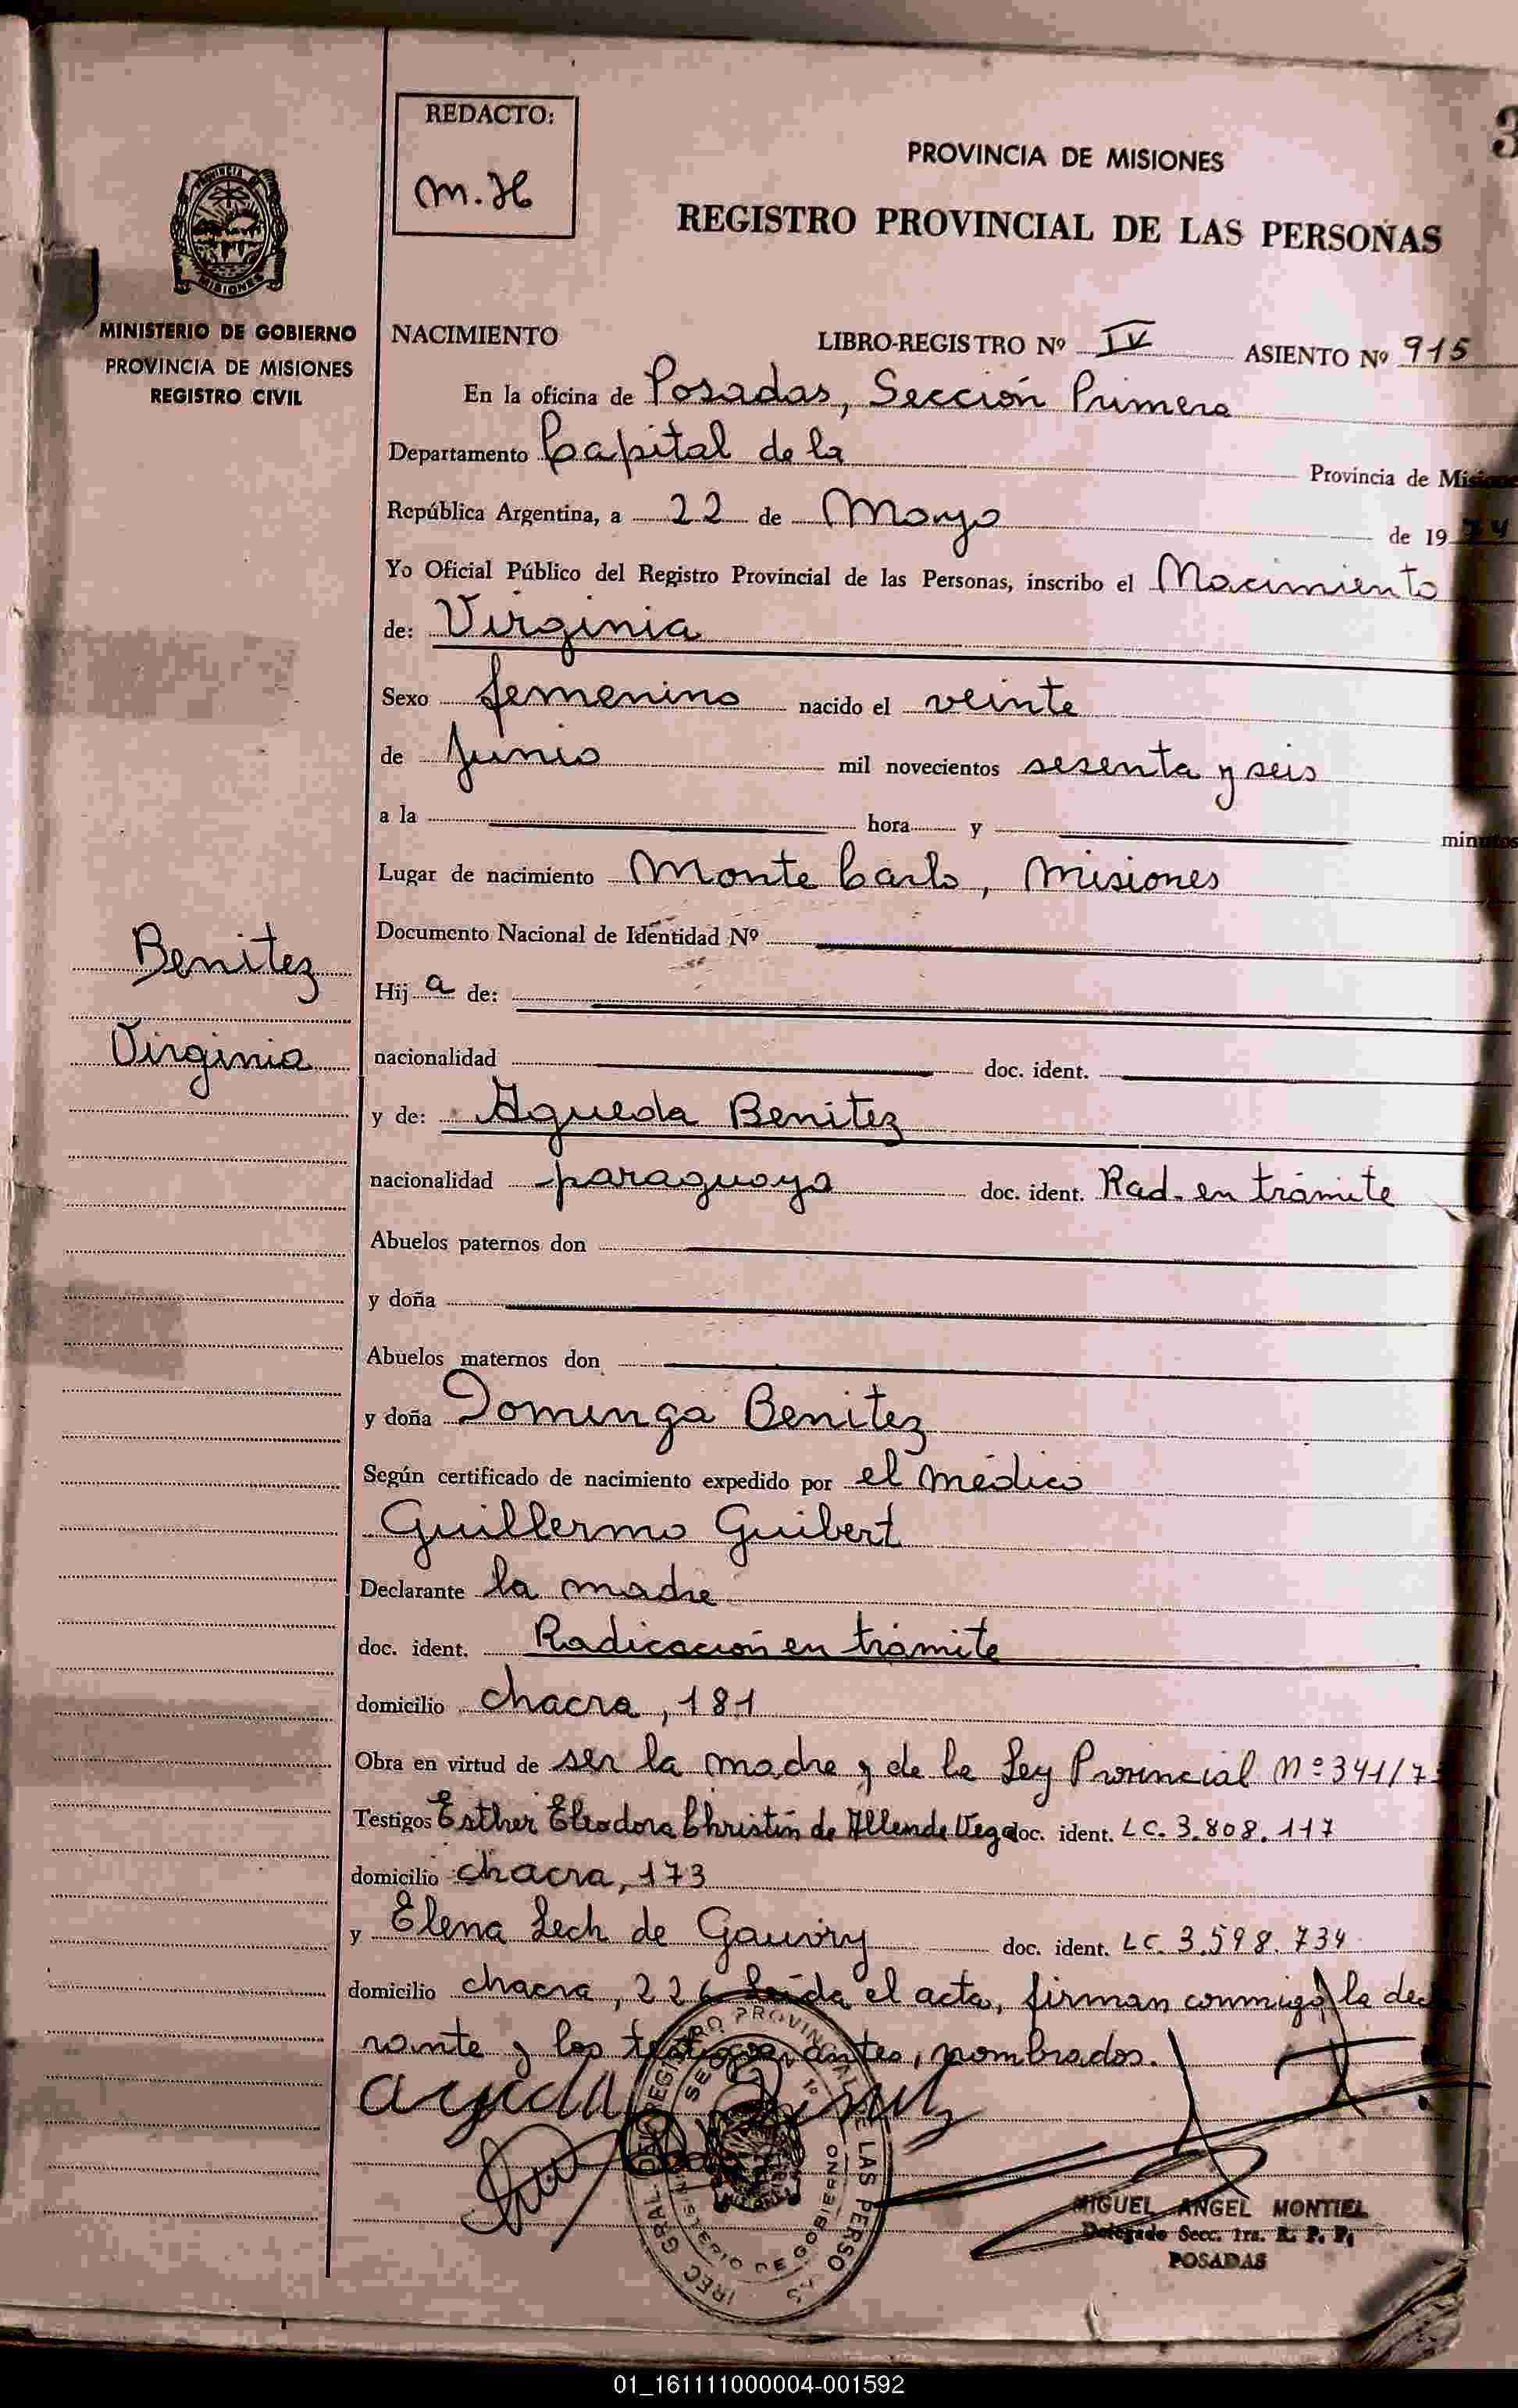 REDACTO:
M.H
3
PROVINCIA DE MISIONES
REGISTRO PROVINCIAL DE LAS PERSONAS
PROVINCIA DE
MISIONES
MINISTERIO DE GOBIERNO
PROVINCIA DE MISIONES
REGISTRO CIVIL
NACIMIENTO LIBRO-REGISTRO Nº IV ASIENTO Nº 915
En la oficina de Posadas, Sección Primera
Departamento Capital de la Provincia de Misiones
República Argentina, a 22 de Mayo de 1974
Yo Oficial Público del Registro Provincial de las Personas, inscribo el Nacimiento
de: Virginia
Sexo femenino nacido el veinte
de Junio mil novecientos sesenta y seis
a la hora y minutos
Lugar de nacimiento Monte Carlo, Misiones
Documento Nacional de Identidad Nº
Benitez
Virginia
Hij a de:
nacionalidad doc. ident.
y de: Agueda Benitez
nacionalidad paraguaya doc. ident. Rad. en trámite
Abuelos paternos don
y doña
Abuelos maternos don
y doña Dominga Benitez
Según certificado de nacimiento expedido por el médico
Guillermo Guibert
Declarante la madre
doc. ident. Radicación en trámite
domicilio chacra, 181
Obra en virtud de ser la madre y de la Ley Provincial Nº 341/7
Testigos Esther Eleodora Christin de Allende Vega doc. ident. LC. 3.808.117
domicilio chacra, 173
y Elena Lech de Gauvry doc. ident. LC. 3.598.734
domicilio chacra, 226 Leida el acta, firman conmigo, la dec
rante y los testigos antes, nombrados.
MIGUEL ANGEL MONTIEL
Delegado Secc. 1ra. R. P. P.
POSADAS
01_161111000004-001592